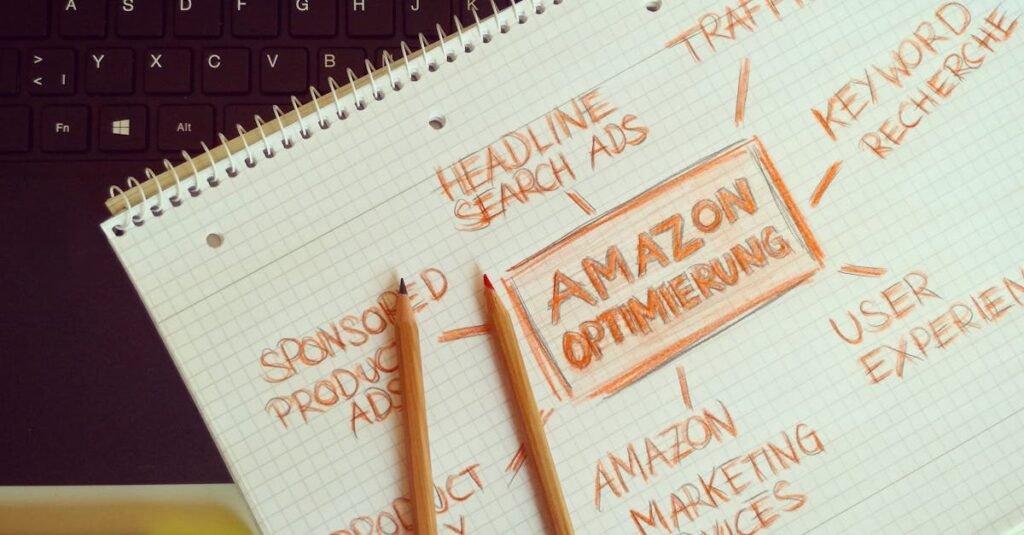 A S D F G H J K
> < | Y X C V B
Fn Alt
TRAFFI
KEYWORD
RECHERCHE
HEADLINE
SEARCH ADS
AMAZON
OPTIMIERUNG
SPONSORED
PRODUCT
ADS
USER
EXPERIEN
AMAZON
MARKETING
VICES
PRODUCT
Y